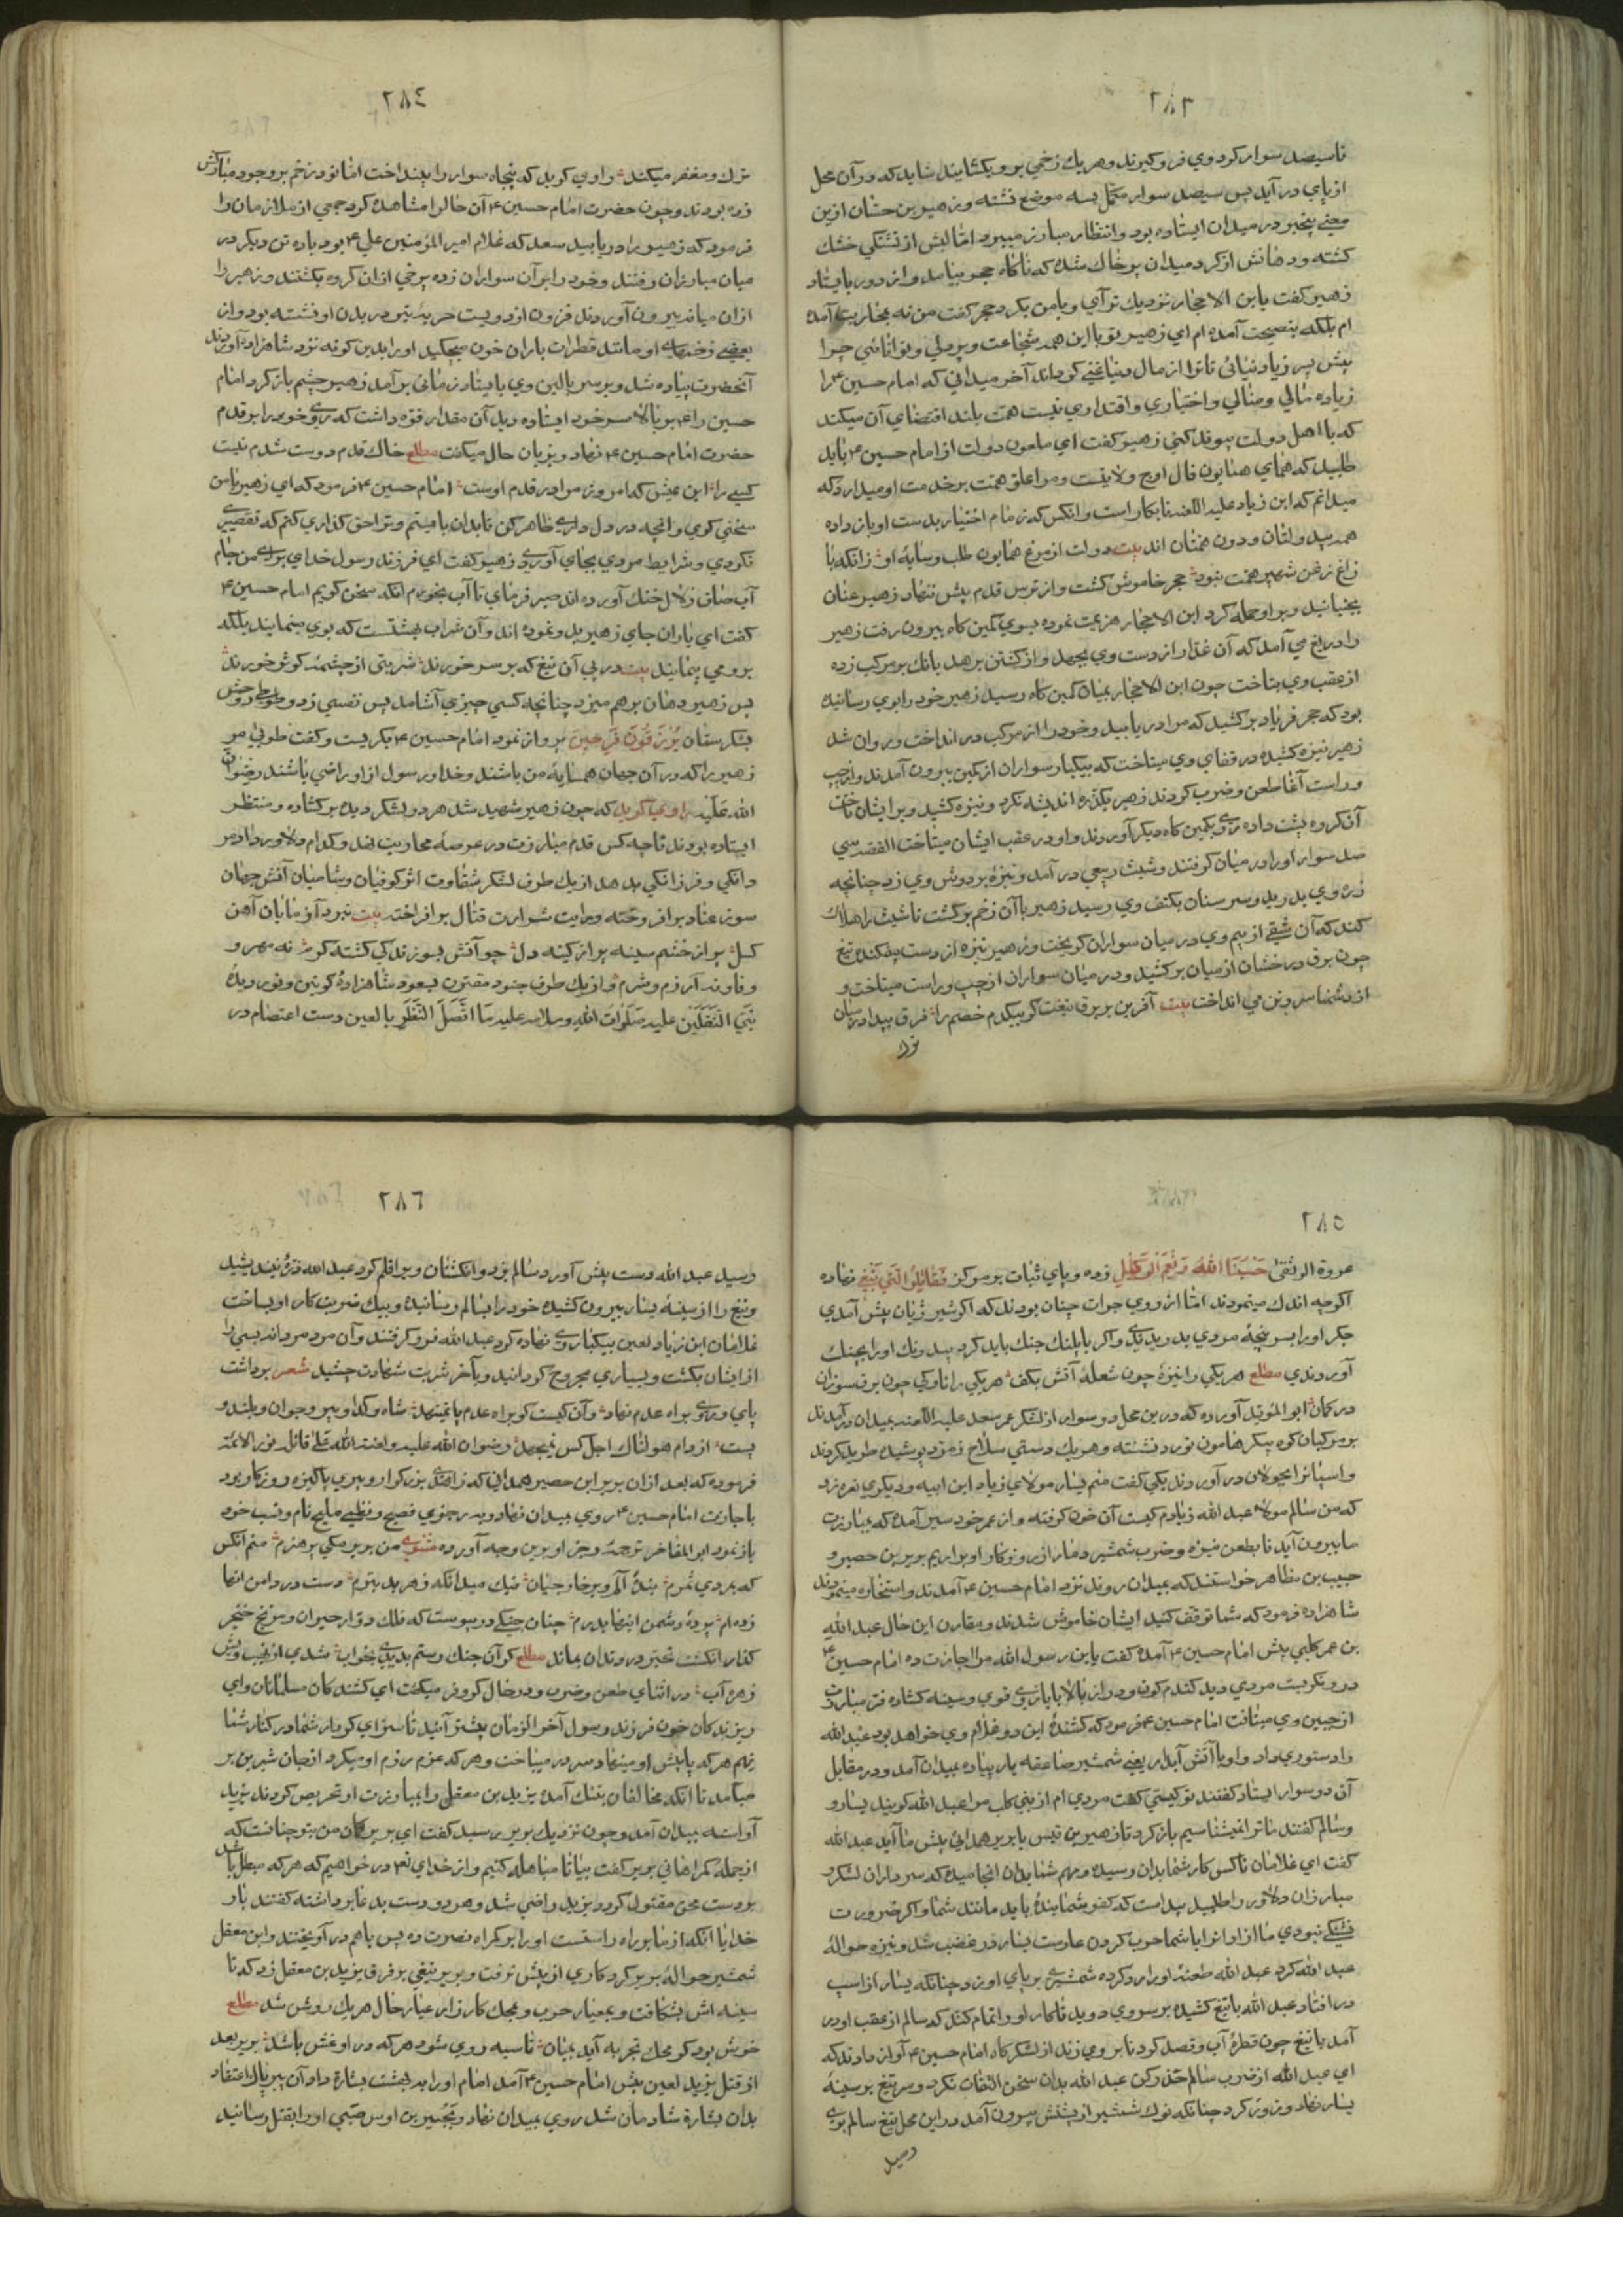 ٢٨٣
تاسیصد سوار کرد وی فرو کیرند و هر یك زخمی بر وی کشایند شاید که در آن محل
از پای در آید پس سیصد سوار مکمل بسه موضع نشسته و زهیر بن حسّان ازین
معنی بیخبر در میدان ایستاده بود و انتظار مبارز میبرد امّا لبش از تشنکی خشك
کشته و دهانش از کرد میدان پر خاك شده که ناکاه حجر بیامد و از دور بایستاد
زهیر کفت یا بن الاحجار نزدیك تر آی و با من بکرد حجر کفت من نه بمحاربت آمده
ام بلکه بنصیحت آمده ام ای زهیر تو با این همه شجاعت و پر دلی و توانائی چرا
پیش پسر زیاد نیائی تا ترا از مال دنیا غنی کرداند آخر میدانی که امام حسین ۴ را
زیاده مالی و منالی و اختیاری و اقتداری نیست همّت بلند اقتضای آن میکند
که با اهل دولت پیوند کنی زهیر کفت ای ملعون دولت از امام حسین ۴ باید
طلبید که همای همایون فال اوج ولایتست و مرا علوّ همّت بر خدمت او میدارد که
میدانم که ابن زیاد علیه اللعنه نابکار است و آنکس که زمام اختیار بدست او باز داده
همه بیدولتان و دون همّتان اند بیت دولت از مرغ همایون طلب و سایهٔ او زانکه با
زاغ و زغن شهپر همّت نبود حجر خاموش کشت و از ترس قدم پیش ننهاد زهیر عنان
بجنبانید و بر او حمله کرد ابن الاحجار هزیمت نموده بسوی کمین کاه بیرون رفت زهیر
را دریغ می آمد که آن غدّار از دست وی بجهد و از کشتن برهد بانك بر مرکب زده
از عقب وی بتاخت چون ابن الاحجار بمیان کمین کاه رسید زهیر خود را بوی رسانیده
بود که حجر فریاد بر کشید که مرا دریابید و خود را از مرکب در انداخت و روان شد
زهیر نیزه کشیده در قفای وی میتاخت که بیکبار سواران از کمین بیرون آمدند و از چپ
و راست آغاز طعن و ضرب کردند زهیر یکذرّه اندیشه نکرد و نیزه کشید و بر ایشان تاخت
آن کروه پشت داده روی بکمین کاه دیکر آوردند و او در عقب ایشان میتاخت القصه سی
صد سوار او را در میان کرفتند و شبث ربعی در آمد و نیزهٔ بر دوش وی زد چنانچه
زره وی بدرید و سر سنان بکتف وی رسید زهیر با آن زخم بر کشت تا شبث را هلاك
کند که آن شقی از بیم وی در میان سواران کریخت و زهیر نیزه از دست بیفکنده تیغ
چون برق درخشان از میان بر کشید و در میان سواران از چپ و راست میتاخت و
از دشمنان سر و تن می انداخت بیت آفرین بر برق تیغت کو بیکدم خصم را فرق بیداد در میان
ترك
٢٨٤
ترك و مغفر میکند راوی کوید که پنجاه سوار را بینداخت امّا نود زخم بر وجود مبارکش
زده بودند و چون حضرت امام حسین ۴ آن حال را مشاهده کرد جمعی از ملازمان را
فرمود که زهیر را دریابید سعد که غلام امیر المؤمنین علی ۴ بود با ده تن دیکر در
میان مبارزان رفتند و خود را بر آن سواران زده برخی از ان کروه بکشتند و زهیر را
از ان میانه بیرون آوردند فزون از دویست حربهٔ تیز در بدن او نشسته بود و از
بعضی زخمهای او مانند قطرات باران خون میچکید او را بدین کونه نزد شاهزاده آوردند
آنحضرت پیاده شد و بر سر بالین وی بایستاد زمانی بر آمد زهیر چشم باز کرد امام
حسین را ۴ بر بالای سر خود ایستاده دید آن مقدار قوّه داشت که روی خود را بر قدم
حضرت امام حسین ۴ نهاد و بزبان حال میکفت مطلع خاك قدم دوست شدم نیست
کسی را این عیش که امروز مرا در قدم اوست امام حسین ۴ فرمود که ای زهیر با من
سخنی کوی و آنچه در دل داری ظاهر کن تا بدان بایستم و ترا حق کذاری کنم که تقصیری
نکردی و شرایط مردی بجای آوردی زهیر کفت ای فرزند رسول خدای برای من جام
آب صاف زلال خنك آورده اند صبر فرمای تا آب بخورم آنکه سخن کویم امام حسین ۴
کفت ای یاران جای زهیر بدو نموده اند و آن شراب بهشتست که بوی مینمایند بلکه
بر وی می پیمایند بیت در پی آن تیغ که بر سر خورند شربتی از چشمهٔ کوثر خورند
پس زهیر دهان بر هم میزد چنانچه کسی چیزی آشامد پس نفسی زد و طوطی روحش
بشکرستان یُرْزَقُونَ فَرِحِینَ پرواز نمود امام حسین ۴ بکریست و کفت طوبی مر
زهیر را که در آن جهان همسایهٔ من باشند و خدا و رسول از او راضی باشند رضوان
الله علیه راوی کوید که چون زهیر شهید شد هر دو لشکر دیده بر کشاده و منتظر
ایستاده بودند تا چه کس قدم مبارزت در عرصهٔ محاربت نهد و کدام دلاور داد مر
دانکی و فرزانکی بدهد از یك طرف لشکر شقاوت اثر کوفیان و شامیان آتش جهان
سوز عناد بر افروخته و رایت شرارت قتال بر افراخته بیت نبرد آزمایان آهن
کسل پر از خشم سینه پر از کینه دل چو آتش بسوزندکی کشته کرم نه مهر و
وفا و نه آزرم و شرم و از یك طرف جنود مقترن بسعود شاهزادهٔ کونین و نور دیدهٔ
نَبِیّ الثَّقَلَیْن علیه صَلَوَات اللهِ وسلامه علیه مَا اتَّصَلَ النَّظَرُ بالعین دست اعتصام در
٢٨٥
عروة الوثقی حَسْبُنَا اللهُ وَنِعْمَ الْوَکِیْلِ زده و پای ثبات بر مرکز فَقَاتِلُوا الَّتِی تَبْغِی نهاده
اکر چه اندك مینمودند امّا از روی جرات چنان بودند که اکر شیر ژیان پیش آمدی
جکر او را بسر پنجهٔ مردی بدریدندی و اکر با پلنك جنك باید کرد بیدرنك او را بچنك
آوردندی مطلع هر یکی را نیزهٔ چون شعلهٔ آتش بکف هر یکی را ناوکی چون برق سوزان
در کمان ابو المؤید آورده که درین محل دو سوار از لشکر عمر سعد علیه اللعنه بمیدان در آمدند
بر مرکبان کوه پیکر هامون نورد نشسته و هر یك دستی سلاح زمرد پوشیده طرید کردند
و اسبانرا بجولان در آوردند یکی کفت منم یسار مولای زیاد ابن ابیه و دیکری نعره زد
که من سالم مولاء عبد الله زیادم کیست آن خون کرفته و از عمر خود سیر آمده که بمبارزت
ما بیرون آید تا بطعن نیزه و ضرب شمشیر دمار از روزکار او بر آریم بریر بن حصیر و
حبیب بن مظاهر خواستند که بمیدان روند نزد امام حسین ۴ آمدند و استجازه مینمودند
شاهزاده فرمود که شما توقّف کنید ایشان خاموش شدند و مقارن این حال عبد الله
بن عمر کلبی پیش امام حسین ۴ آمده کفت یا بن رسول الله مرا اجازت ده امام حسین ۴
در و نکریست مردی دید کندم کون و دراز بالا با بازوی قوی و سینه کشاده فرّ مبارزت
از جبین وی میتافت امام حسین ۴ فرمود که کشندهٔ این دو غلام وی خواهد بود عبد الله
را دستوری داد و او با آتش آبدار یعنی شمشیر صاعقه بار پیاده بمیدان آمد و در مقابل
آن دو سوار ایستاد کفتند تو کیستی کفت مردی ام از بنی کلب مرا عبد الله کویند یسار و
و سالم کفتند ما ترا نمیشناسیم باز کرد تا زهیر بن قیس یا بریر همدانی پیش ما آید عبد الله
کفت ای غلامان ناکس کار شما بدان رسیده و مهم شما بدان انجامیده که سرداران لشکر و
مبارزان دلاور را طلبید پیداست که کفو شما بندهٔ باید مانند شما و اکر ضرورت
نبودی ما از ادانرا با شما حرب کردن عارست یسار در غضب شد و نیزه حوالهٔ
عبد الله کرد عبد الله طعنهٔ او را رد کرده شمشیری بر پای او زد چنانکه یسار از اسپ
در افتاد عبد الله با تیغ کشیده بر سر وی دوید تا کار او را تمام کند که سالم از عقب او در
آمد با تیغ چون قطرهٔ آب و قصد کرد تا بر وی زند از لشکرکاه امام حسین ۴ آواز دادند که
ای عبد الله از ضرب سالم حذر کن عبد الله بدان سخن التفات نکرد و سر تیغ بر سینهٔ
یسار نهاد و زور کرد چنانکه نوك شمشیر از پشتش بیرون آمد در این محل تیغ سالم بوی
رسید
٢٨٦
رسید عبد الله دست پیش آورد سالم بزد و انکشتان ویرا قلم کرد عبد الله ذرّهٔ نیندیشید
و تیغ را از سینهٔ یسار بیرون کشیده خود را بسالم رسانیده و بیك ضربت کار او بساخت
غلامان ابن زیاد لعین بیکبار روی نهاده کرد عبد الله فرو کرفتند و آن مرد مردانه بسی را
از ایشان بکشت و بسیاری مجروح کردانید و بآخر شربت شهادت چشید شعر برداشت
پای و روی براه عدم نهاد و آن کیست کو براه عدم پا نمینهد شاه و کدا و پیر و جوان و بلند و
پست از دام هولناك اجل کس نمیجهد رضوان الله علیه و لعنة الله علی قاتله نور الائمه
فرموده که بعد از ان بریر ابن حصیر همدانی که زاهدی بزرکوار و پیری پاکیزه روزکار بود
باجازت امام حسین ۴ روی بمیدان نهاد و بد رجزی فصیح و نظمی ملیح نام و نسب خود
باز نمود ابو المفاخر ترجمهٔ رجز او برین وجه آورده مثنوی من بریر میکی پر هنرم منم آنکس
که بمردی سمرم بندهٔ آل و پر خازجیان نیك میدانکه ز هر بد بترم دست در دامن اینها
زده ام پردهٔ دشمن اینها بدرم چنان جنکی در پیوست که فلك دوّار حیران و مرّیخ خنجر
کذار انکشت تحیّر در دندان بماند مطلع کر آن جنك رستم بدیدی بخواب شدی از نهیب ویش
زهره آب در اثنای طعن و ضرب و در حال کر و فر میکفت ای کشندکان مسلمانان و ای
ریزندکان خون فرزند رسول آخر الزمان پیشتر آئید تا سزای کردار شما در کنار شما
نهم هر که پا پیش او مینهاد سر در میباخت و هر که عزم رزم او میکرد از جان شیرین بر
میآمد تا آنکه مخالفان بتنك آمده یزید بن معقل را بمبارزت او تحریص کردند یزید
آراسته بمیدان آمد و چون نزدیك بریر رسید کفت ای بریر کمان من بتو چنانست که
از جمله کمراهانی بریر کفت بیا تا مباهله کنیم و از خدای تع۴ در خواهیم که هر که مبطل باشد
بر دست محق مقتول کردد یزید راضی شد و هر دو دست بدعا برداشته کفتند بار
خدایا آنکه از ما بر راه راستست او را بر کمراه نصرت ده پس با هم در آویختند و ابن معقل
شمشیر حوالهٔ بریر کرد کاری از پیش نرفت و بریر تیغی بر فرق یزید بن معقل زد که تا
سینه اش بشکافت و بمعیار حرب و محك کارزار عیار حال هر یك روشن شد مطلع
خوش بود کر محك تجربه آید بمیان تا سیه روی شود هر که در او غش باشد بریر بعد
از قتل یزید لعین پیش امام حسین ۴ آمد امام او را بد بهشت بشارة داد آن پیر پاك اعتقاد
بدان بشارة شادمان شد روی بمیدان نهاد و بُحَیر بن اوس ضبّی او را بقتل رسانید